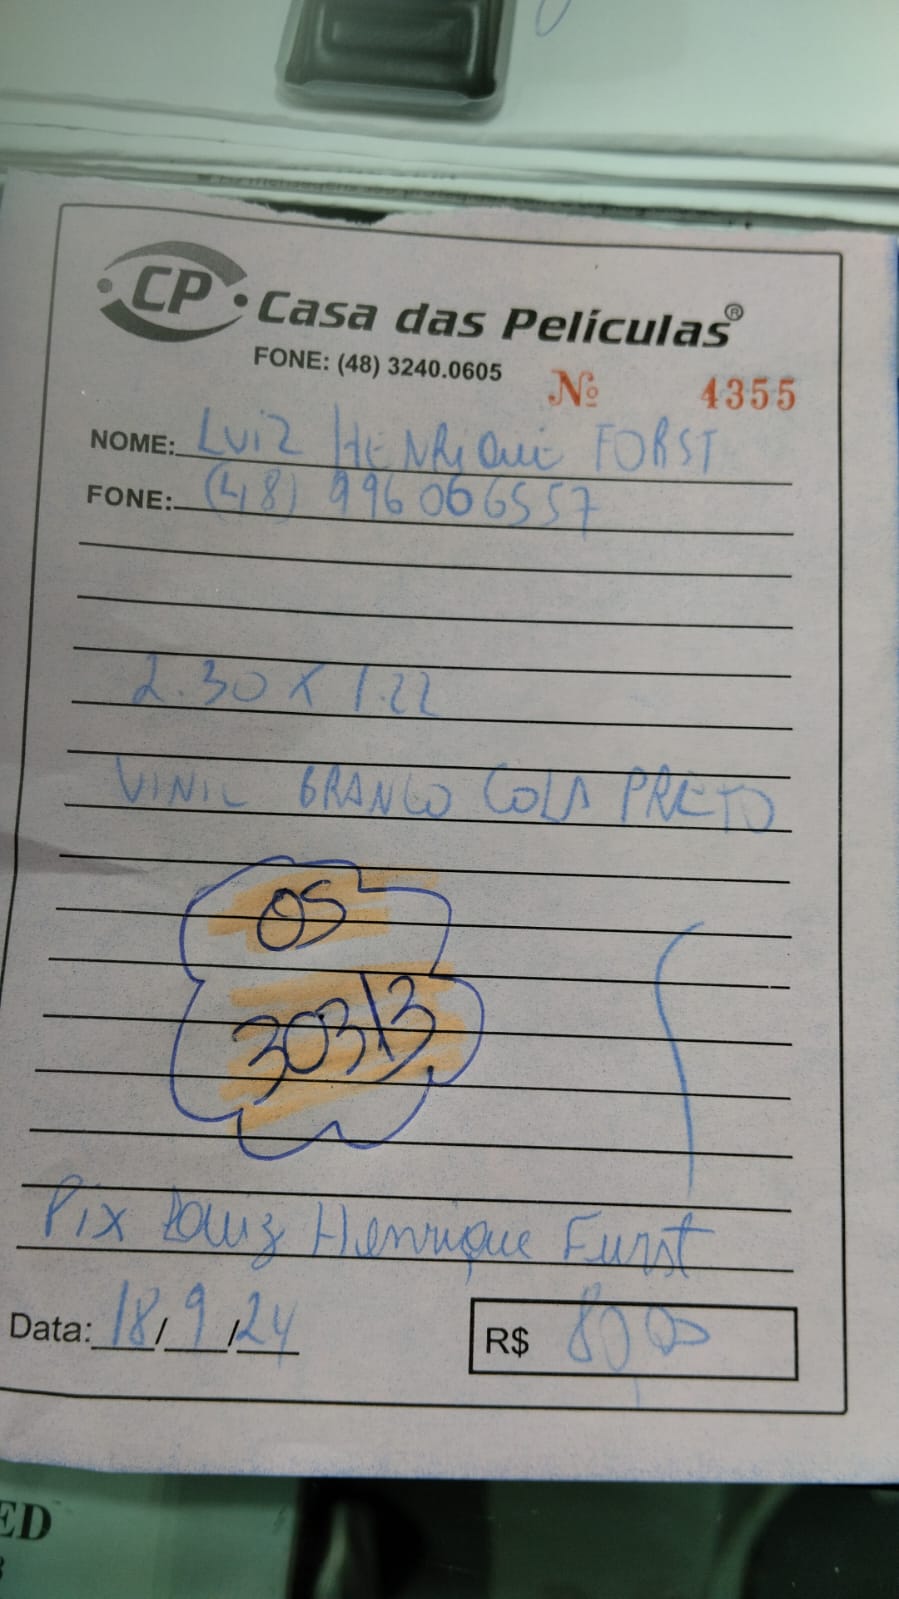 CP Casa das Películas®
FONE: (48) 3240.0605
Nº 4355
NOME: LUIZ HENRIQUE FORST
FONE: (48) 996066557
2.30 X 1.22
VINIL BRANCO COLA PRETO
OS
30313
Pix Luiz Henrique Furst
Data: 18/9/24
R$ 80,00
ED